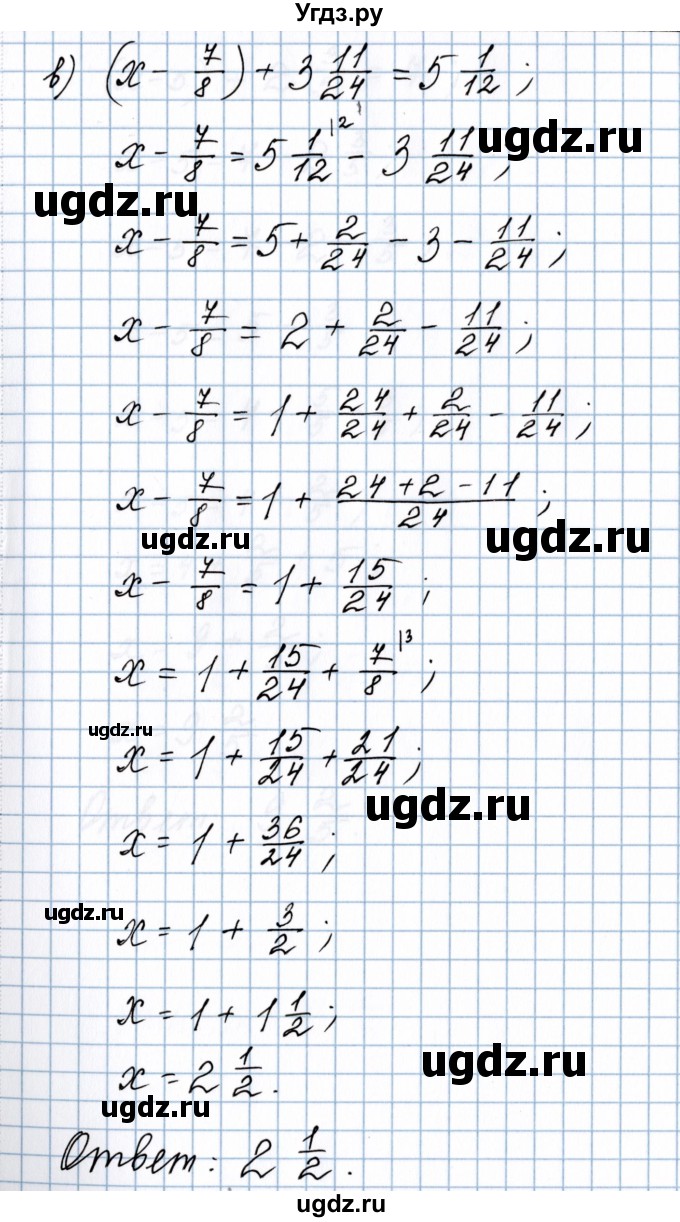 Угдз.ру
в) (x - 7/8) + 3 11/24 = 5 1/12 ;
x - 7/8 = 5 1/12 |2 - 3 11/24 ;
ugdz.ru
ugdz.ru
x - 7/8 = 5 + 2/24 - 3 - 11/24 ;
x - 7/8 = 2 + 2/24 - 11/24 ;
x - 7/8 = 1 + 24/24 + 2/24 - 11/24 ;
x - 7/8 = 1 + (24 + 2 - 11)/24 ;
ugdz.ru
ugdz.ru
x - 7/8 = 1 + 15/24 ;
x = 1 + 15/24 + 7/8 |3 ;
ugdz.ru
x = 1 + 15/24 + 21/24 ;
ugdz.ru
x = 1 + 36/24 ;
ugdz.ru
x = 1 + 3/2 ;
x = 1 + 1 1/2 ;
ugdz.ru
x = 2 1/2 .
ugdz.ru
Ответ: 2 1/2 .
ugdz.ru